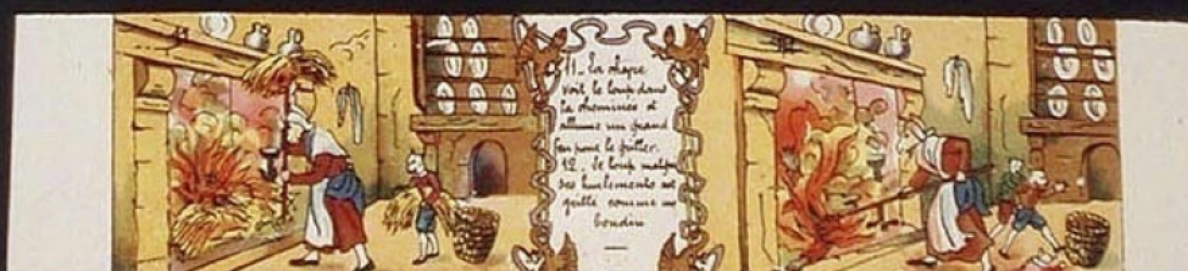 11. La chèvre
voit le loup dans
la cheminée et
allume un grand
feu pour le griller.
12. Le loup malgré
ses hurlements est
grillé comme un
boudin